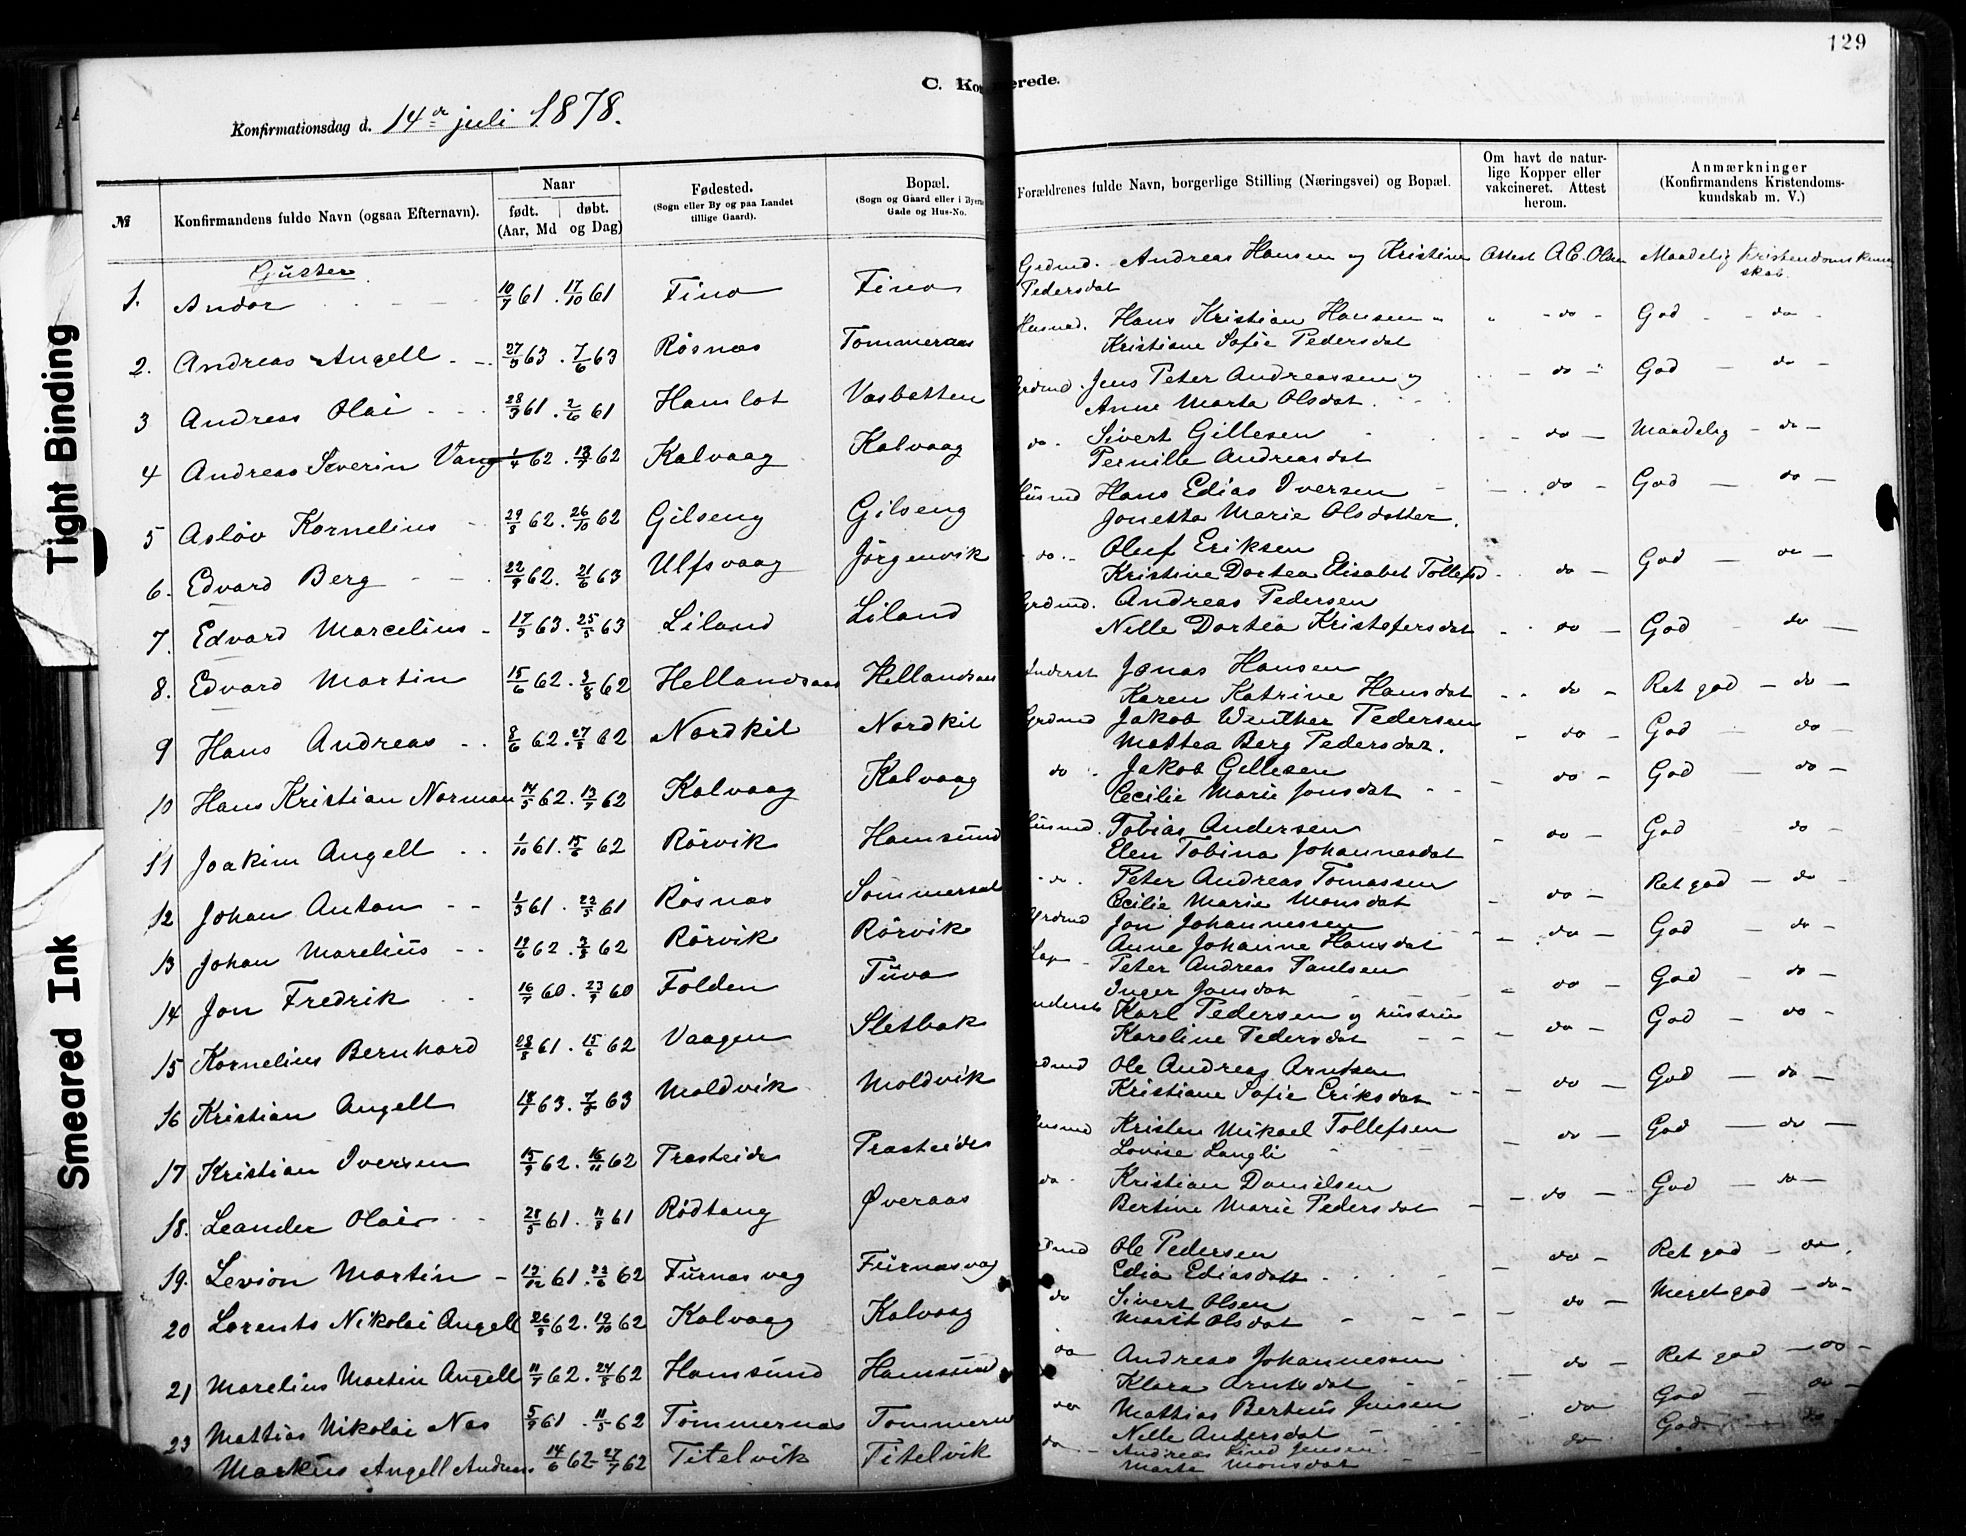 129
C. Ko
erede.
Konfirmationsdag d. 14de juli 1878.
№
Konfirmandens fulde Navn (ogsaa Efternavn).
Naar
født. døbt.
(Aar, Md og Dag)
Fødested.
(Sogn eller By og paa Landet tillige Gaard).
Bopæl.
(Sogn og Gaard eller i Byerne Gade og Hus-No.
Forældrenes fulde Navn, borgerlige Stilling (Næringsvei) og Bopæl.
Om havt de naturlige Kopper eller vakcineret. Attest herom.
Anmærkninger
(Konfirmandens Kristendomskundskab m. V.)
Gutter
1. Andor - - - 10/7 61. 17/10 61 Fino Fino Grdmd. Andreas Hansen og Kristine Pedersdat Attest A.C. Olsen Maadelig Kristendomskundskab.
2. Andreas Angell - - 27/3 63. 7/6 63 Røsnæs Tommeraas Husmd. Hans Kristian Hansen " Kristiane Sofie Pedersdat " - do - God - - do -
3 Andreas Olai - - 28/3 61. 2/6 61 Hamlot Vasbotten Grdmd. Jens Peter Andreassen og Anne Marta Olsdat. - do - God - do -
4 Andreas Severin Vang 1/4 62. 13/7 62 Kalvaag Kalvaag do. Sivert Gillesen Pernille Andreasdat - - do - Maadelig - do -
5 Asløv Kornelius - 29/8 62. 26/10 62 Gilseng Gilseng Husmd Hans Edias Iversen Jonetta Marie Olsdatter. - do - God - do -
6. Edvard Berg - - 22/9 62. 21/6 63 Ulfsvaag Jørgenvik - do - Oluf Eriksen Kristine Dortea Elisabet Tollefsd - do - God - do -
7. Edvard Marcelius - 17/3 63. 25/5 63 Liland Liland Grdmd. Andreas Pedersen Nelle Dortea Kristofersdat - - do - God - do -
8. Edvard Martin 15/6 62. 3/8 62 Hellandsaas Hellandsaas Inderst Jonas Hansen Karen Katrine Hansdat - - do - Ret god - do -
9 Hans Andreas - - 8/6 62. 27/8 62 Nordkil Nordkil Grdmd Jakob Wenther Pedersen Mattea Berg Pedersdat. - do - God - do -
10 Hans Kristian Norman 14/5 62. 13/7 62 Kalvaag Kalvaag do. Jakob Gillesen Cecilie Marie Jonsdat - - - do - God - do -
11 Joakim Angell - - 1/10 61. 15/6 62 Rørvik Hamsund Husmd. Tobias Andersen Elen Tobina Johannesdat - do - God - do -
12 Johan Anton - - 1/3 61. 22/5 61 Røsnæs Sommersel - do. Peter Andreas Tomassen Cecilie Marie Monsdat - do - Ret god - do -
13 Johan Marelius - - 19/6 62. 3/8 62 Rørvik Rørvik Grdmd Jon Johannessen Anne Johanne Hansdat - do - God - do -
14 Jon Fredrik - - 16/7 60. 23/9 60 Folden Tuva Lap - Peter Andreas Paulsen Inger Jonsdat - do - God - do -
15 Kornelius Bernhard 28/8 61. 15/6 62 Vaagen Sletbak Inderst Karl Pedersen og hustru Karoline Pedersdat - - - do - God - do -
16 Kristian Angell 18/7 63. 7/8 63 Moldvik Moldvik Grdmd Ole Andreas Arntsen Kristiane Sofie Eriksdat - - - do - God - do -
17 Kristian Iversen 15/9 62. 16/11 62 Prasteide Prasteide Husmd Kristen Mikael Tollefsen Lovise Langli - - do - God - do -
18. Leander Olai - - 28/5 61. 11/8 61 Rødtang Øveraas do. Kristian Danielsen Bertine Marie Pedersdat - - do - God - do -
19. Levion Martin - 19/12 61. 22/6 62 Furnasvag Furnasvag Grdmd Ole Pedersen Edia Ediasdatt - - do - Ret god - do.
20 Lorents Nikolai Angell 26/8 62. 19/10 62 Kalvaag Kalvaag do Sivert Olsen Marit Olsdat - - - do - Meget god - do -
21 Marelius Martin Angell 11/7 62. 24/8 62 Hamsund Hamsund do - Andreas Johannessen Klara Arntsdat - - do - Ret god - do -
23 Mattias Nikolai Næs 5/9 61. 11/5 62 Tømmernæs Tommernæs do Mathias Berteus Jensen Nelle Andersdat - do God - do -
Markus Angell Andreas 14/6 62. 27/7 62 Titelvik Titelvik do - Andreas Lind Jensen Marte Monsdat - do God - do
Tight Binding
Smeared Ink